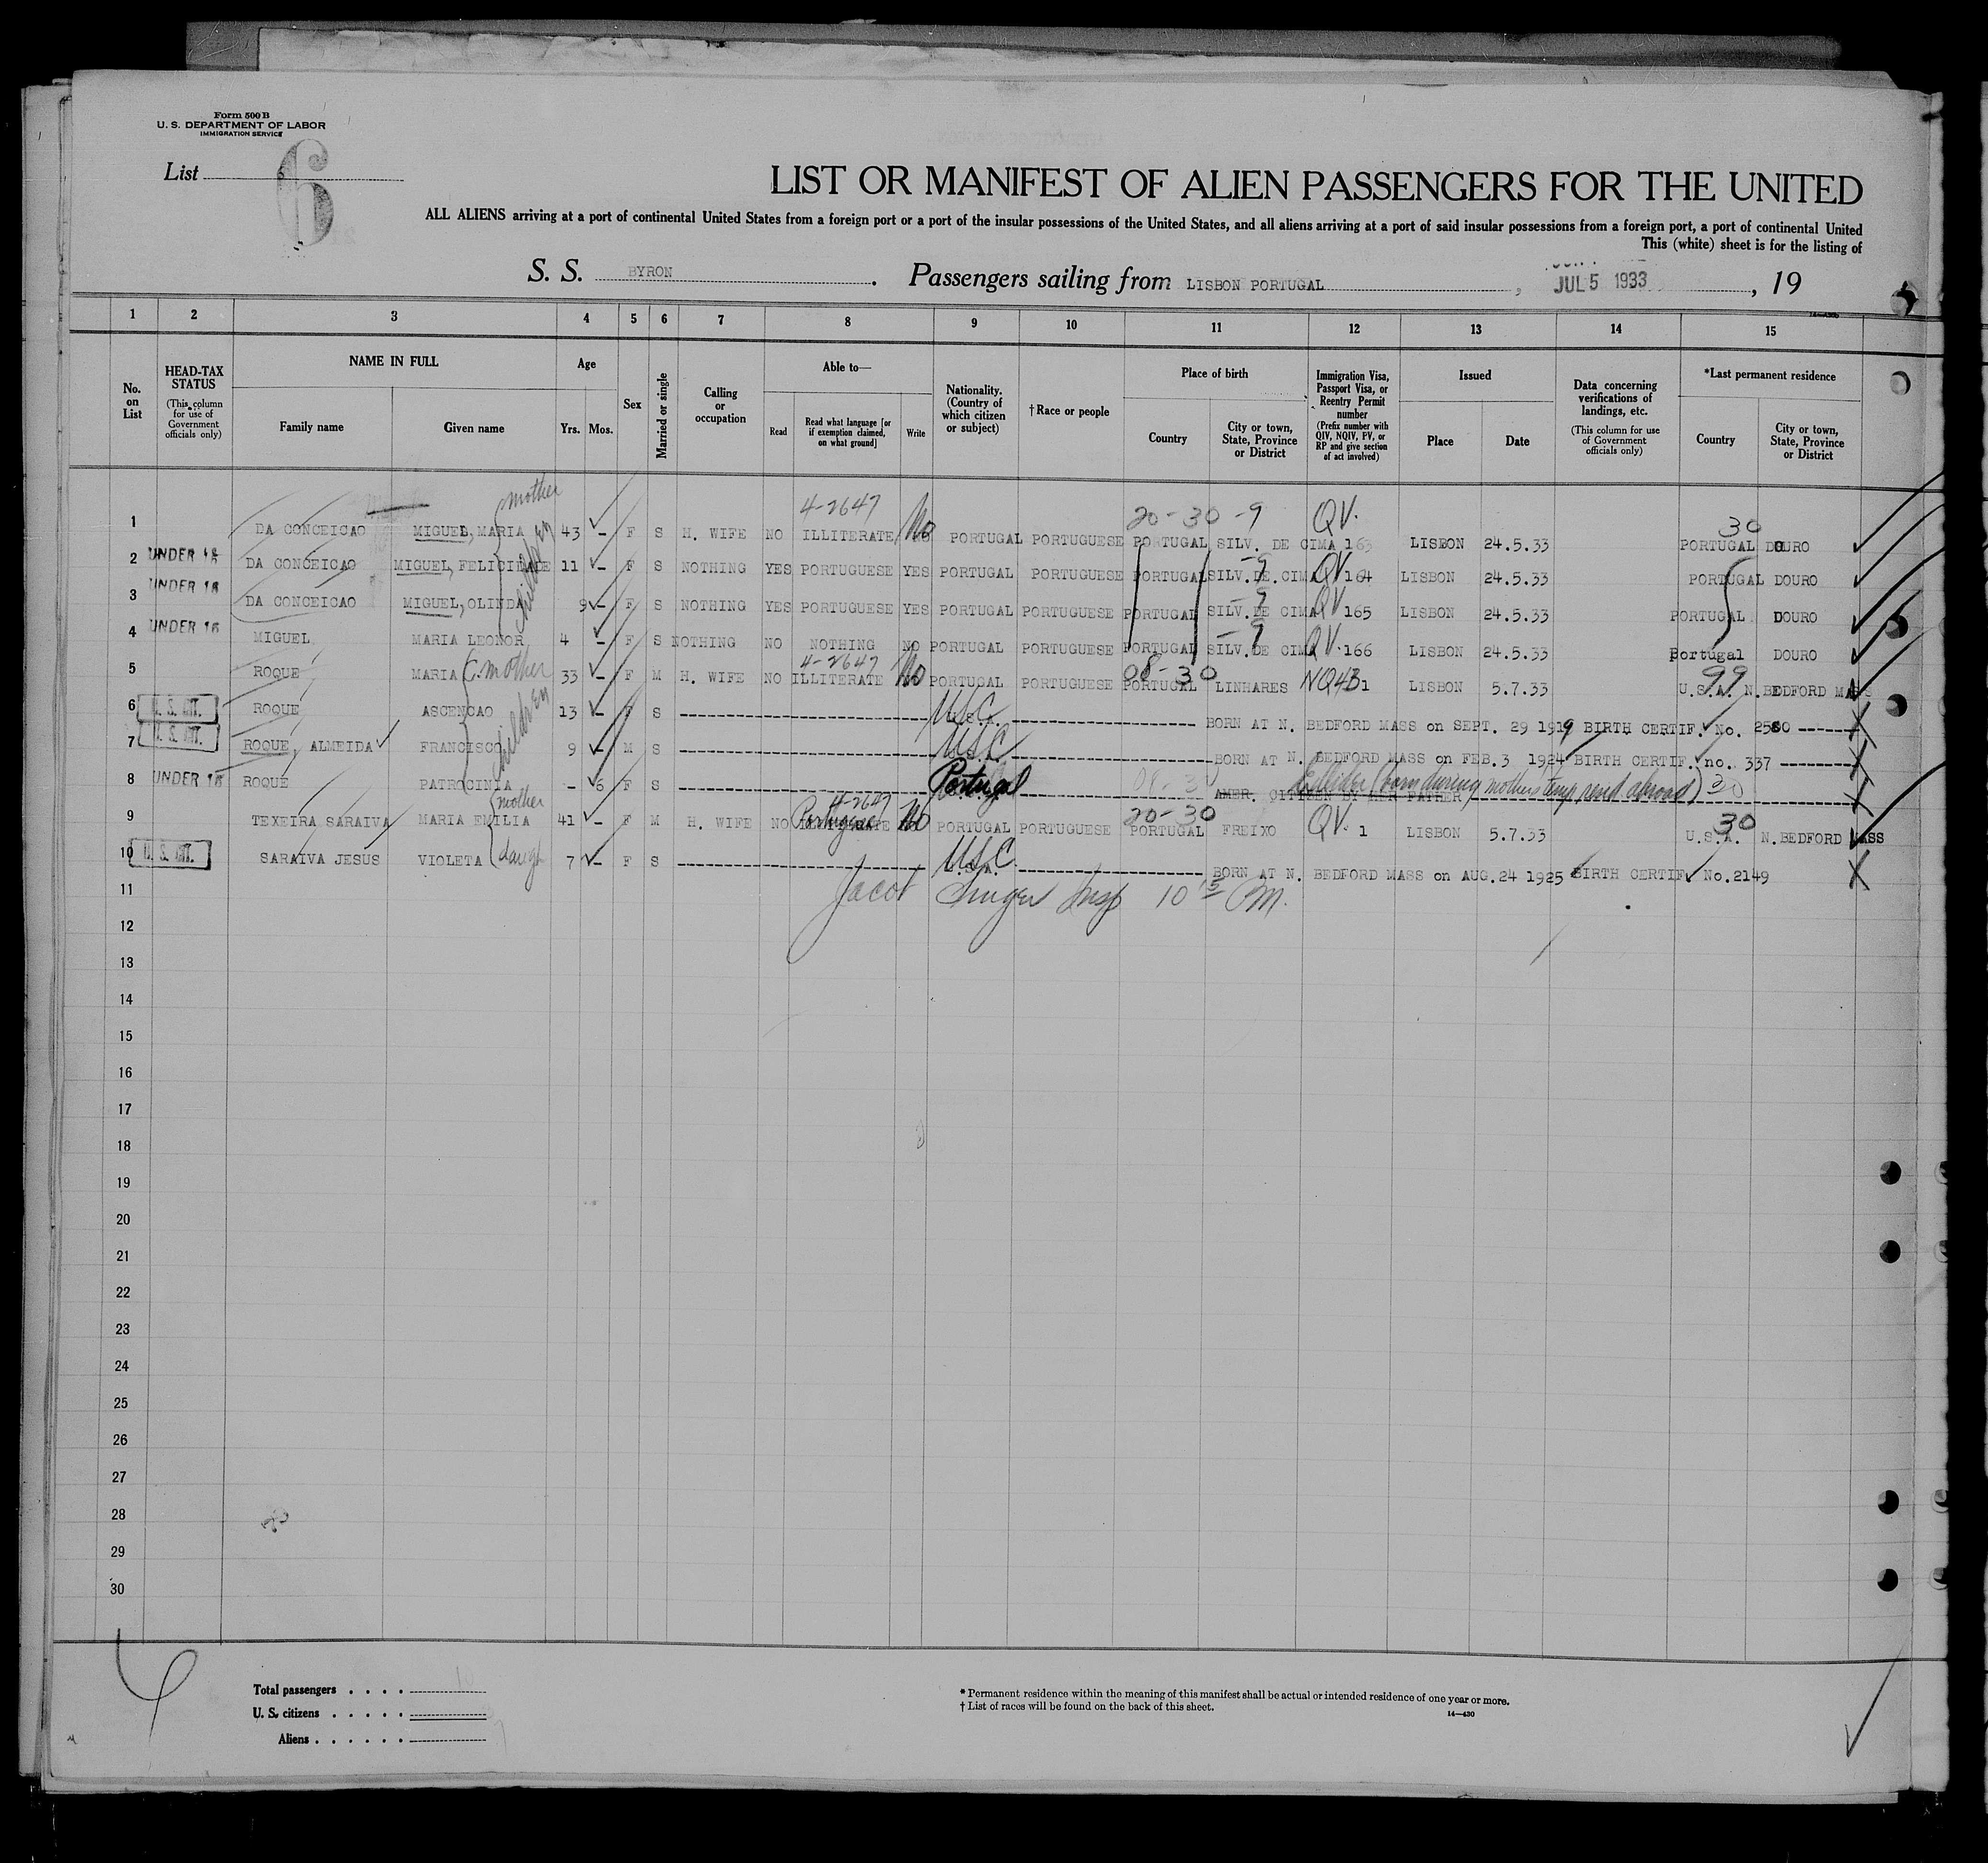 Form 500 B
U. S. DEPARTMENT OF LABOR
IMMIGRATION SERVICE
List 6
LIST OR MANIFEST OF ALIEN PASSENGERS FOR THE UNITED
ALL ALIENS arriving at a port of continental United States from a foreign port or a port of the insular possessions of the United States, and all aliens arriving at a port of said insular possessions from a foreign port, a port of continental United
This (white) sheet is for the listing of
S. S. BYRON. Passengers sailing from LISBON PORTUGAL, JUL 5 1933, 19
1 2 3 4 5 6 7 8 9 10 11 12 13 14 15
No. on List
HEAD-TAX STATUS (This column for use of Government officials only)
NAME IN FULL Family name Given name
Age Yrs. Mos.
Sex
Married or single
Calling or occupation
Able to— Read Read what language [or if exemption claimed, on what ground] Write
Nationality. (Country of which citizen or subject)
†Race or people
Place of birth Country City or town, State, Province or District
Immigration Visa, Passport Visa, or Reentry Permit number (Prefix number with QIV, NQIV, PV, or RP and give section of act involved)
Issued Place Date
Data concerning verifications of landings, etc. (This column for use of Government officials only)
*Last permanent residence Country City or town, State, Province or District
mother 4-2647 20-30-9 QV. 30
1 DA CONCEICAO MIGUEL, MARIA 43 - F S H. WIFE NO ILLITERATE No PORTUGAL PORTUGUESE PORTUGAL SILV. DE CIMA 163 LISBON 24.5.33 PORTUGAL DOURO
2 UNDER 16 DA CONCEICAO MIGUEL, FELICIDADE 11 - F S NOTHING YES PORTUGUESE YES PORTUGAL PORTUGUESE PORTUGAL SILV. DE. CIMA QV 164 LISBON 24.5.33 PORTUGAL DOURO
children
3 UNDER 16 DA CONCEICAO MIGUEL, OLINDA 9 - F S NOTHING YES PORTUGUESE YES PORTUGAL PORTUGUESE PORTUGAL -9 SILV. DE CIMA QV 165 LISBON 24.5.33 PORTUGAL DOURO
4 UNDER 16 MIGUEL MARIA LEONOR 4 - F S NOTHING NO NOTHING NO PORTUGAL PORTUGUESE PORTUGAL -9 SILV. DE CIMA QV. 166 LISBON 24.5.33 Portugal DOURO
4-2647 08-30 99
5 ROQUE MARIA C. mother 33 - F M H. WIFE NO ILLITERATE No PORTUGAL PORTUGUESE PORTUGAL LINHARES NQ4B1 LISBON 5.7.33 U.S.A. N.BEDFORD MASS
children
6 U. S. CIT. ROQUE ASCENCAO 13 - F S USC U.S.A. BORN AT N. BEDFORD MASS on SEPT. 29 1919 BIRTH CERTIF. No.
7 U. S. CIT. ROQUE, ALMEIDA FRANCISCO 9 - M S USC BORN AT N. BEDFORD MASS on FEB.3 1924 BIRTH CERTIF. no. 337
8 UNDER 16 ROQUE PATROCINIA - 6 F S Portugal 08-30 AMER. CITIZEN BY HER FATHER (born during mothers temp resid abroad) 30
mother 4-2647 20-30 30
9 TEXEIRA SARAIVA MARIA EMILIA 41 - F M H. WIFE NO Portuguese No PORTUGAL PORTUGUESE PORTUGAL FREIXO QV. 1 LISBON 5.7.33 U.S.A. N.BEDFORD MASS
10 U. S. CIT. SARAIVA JESUS VIOLETA daugh 7 - F S USC U.S.A. BORN AT N. BEDFORD MASS on AUG.24 1925 BIRTH CERTIF No.2149
11 Jacob Singer Insp 10 15 AM.
12
13
14
15
16
17
18
19
20
21
22
23
24
25
26
27
28
29
30
Total passengers . . . . 10
U. S. citizens . . . . .
Aliens . . . . . .
* Permanent residence within the meaning of this manifest shall be actual or intended residence of one year or more.
† List of races will be found on the back of this sheet.
14—430